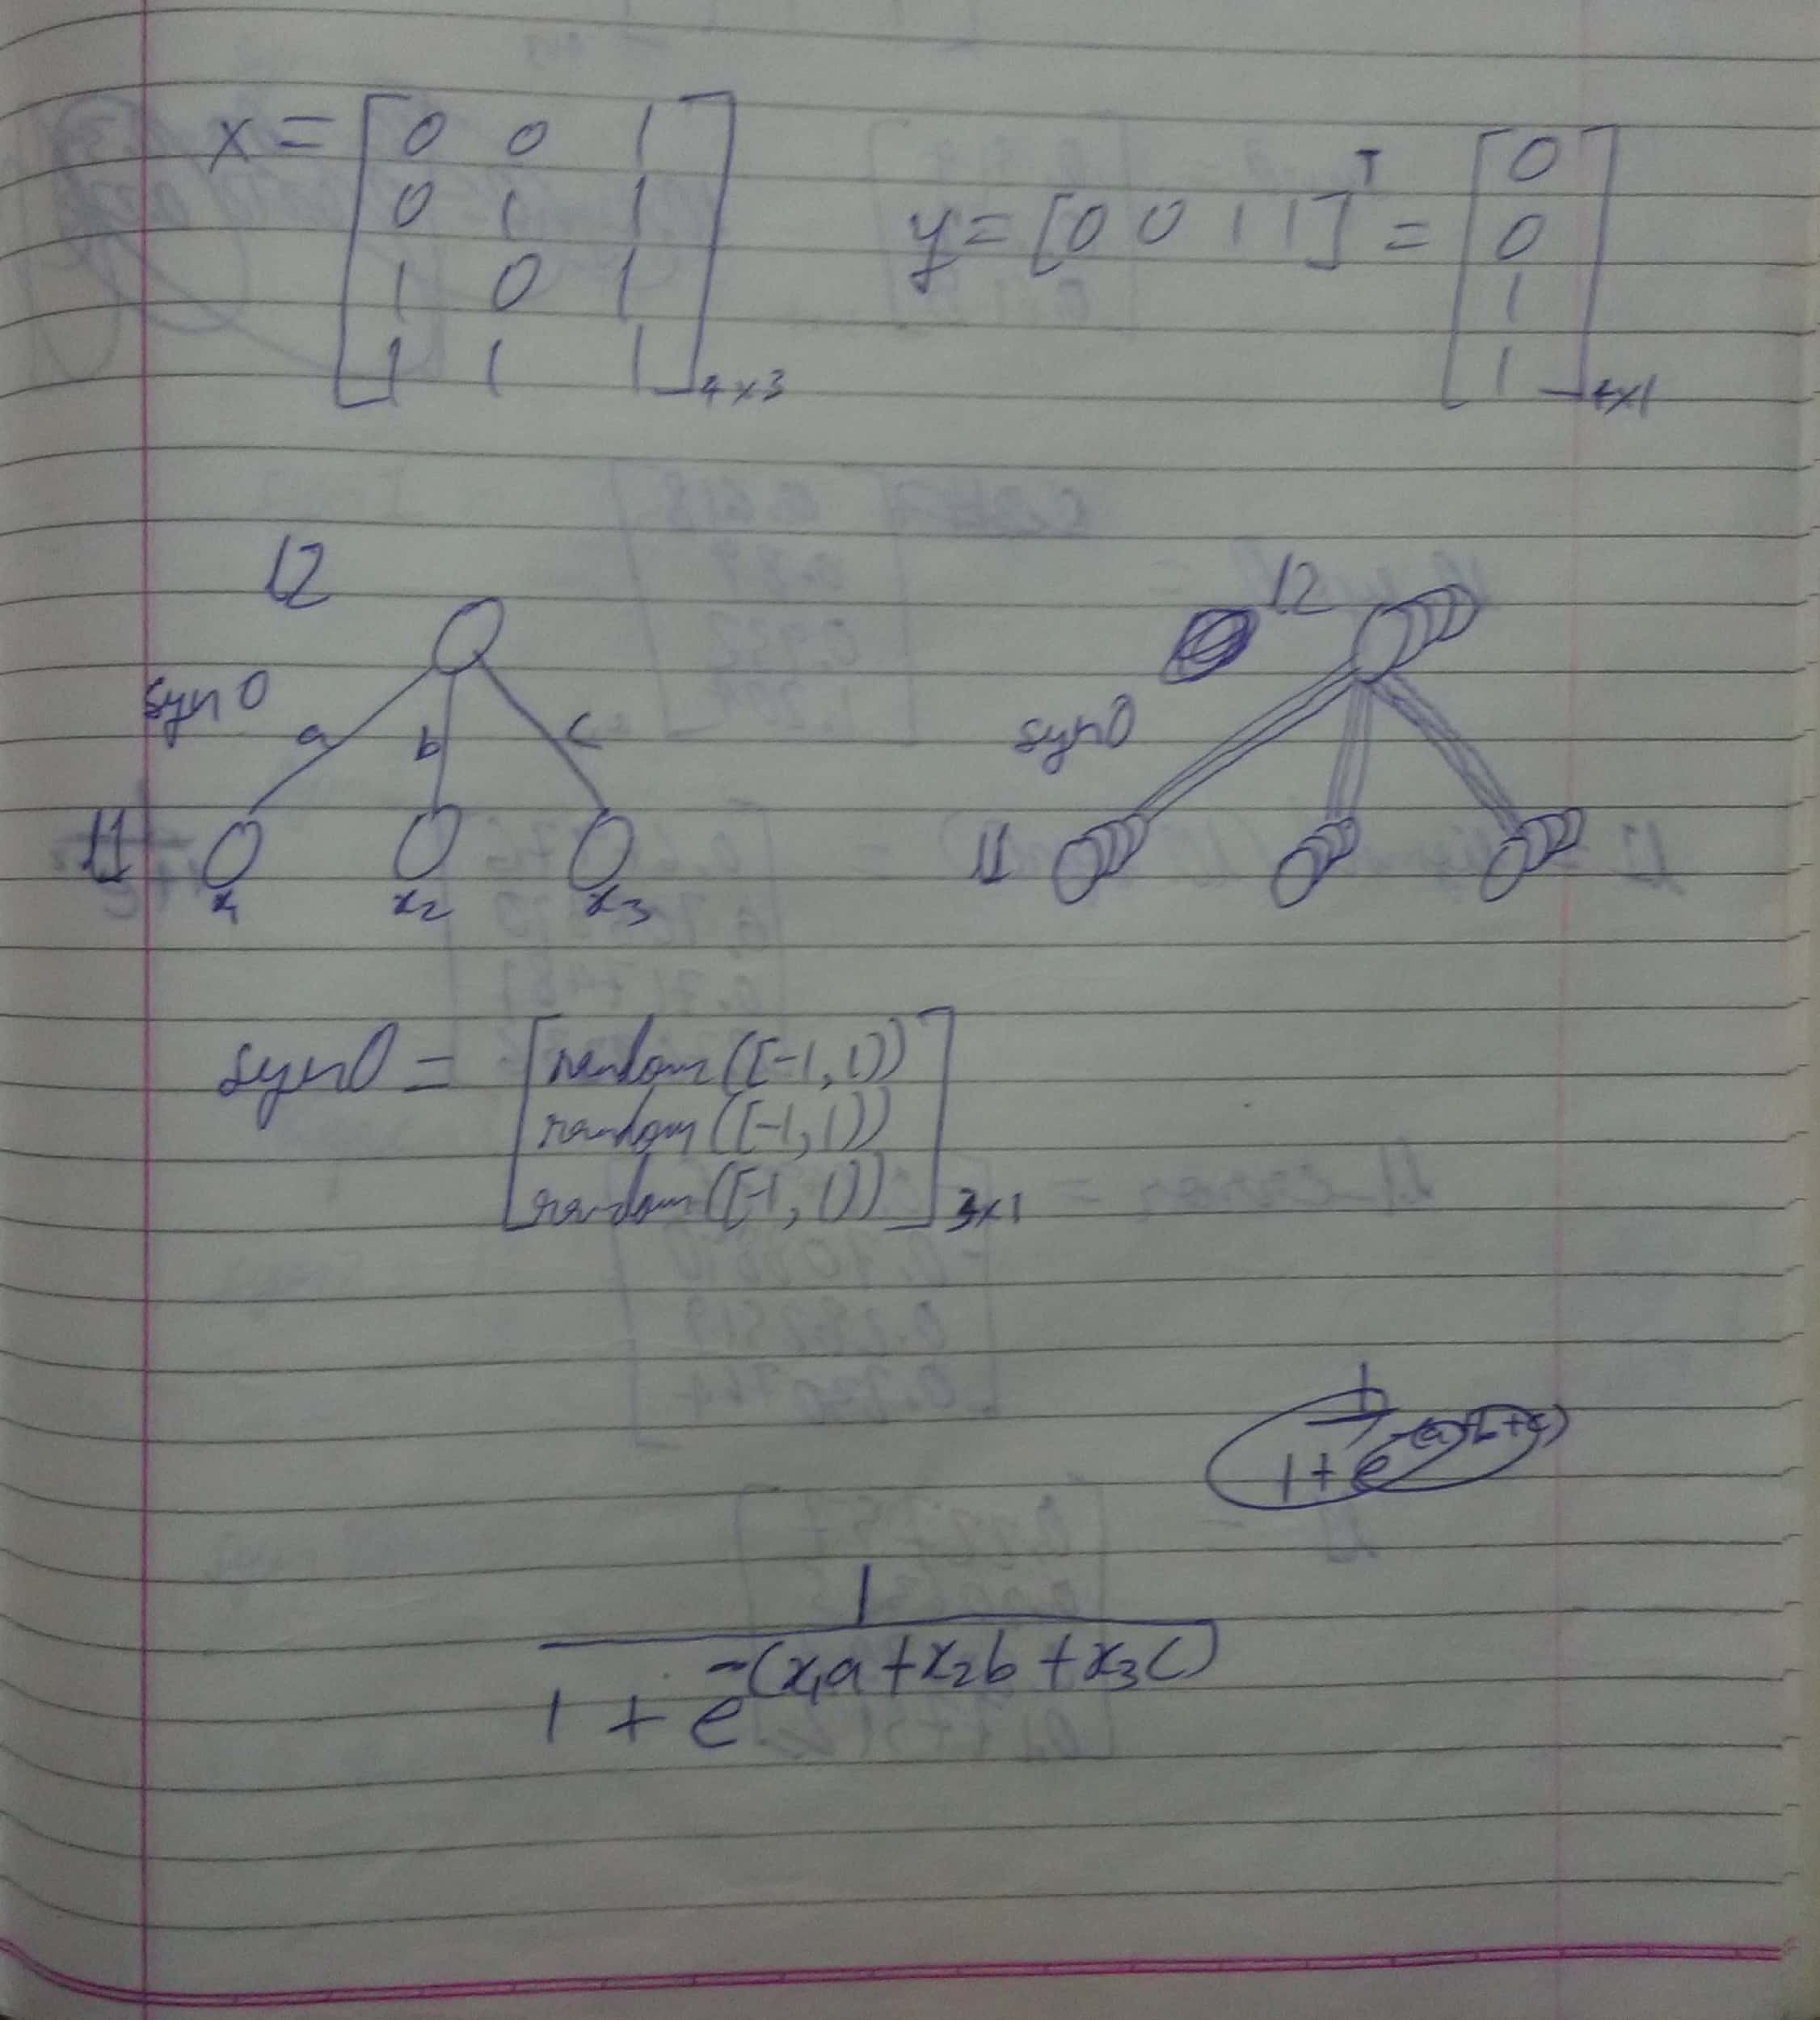 x = [0 0 1
0 1 1
1 0 1
1 1 1] 4x3
y = [0 0 1 1]ᵀ = [0
0
1
1] 4x1
l2
syn0
a b c
l1
x1 x2 x3
l2
syn0
l1
syn0 = [random([-1, 1))
random([-1, 1))
random([-1, 1))] 3x1
1
1 + e -(a+b+c)
1
1 + e -(x1a + x2b + x3c)